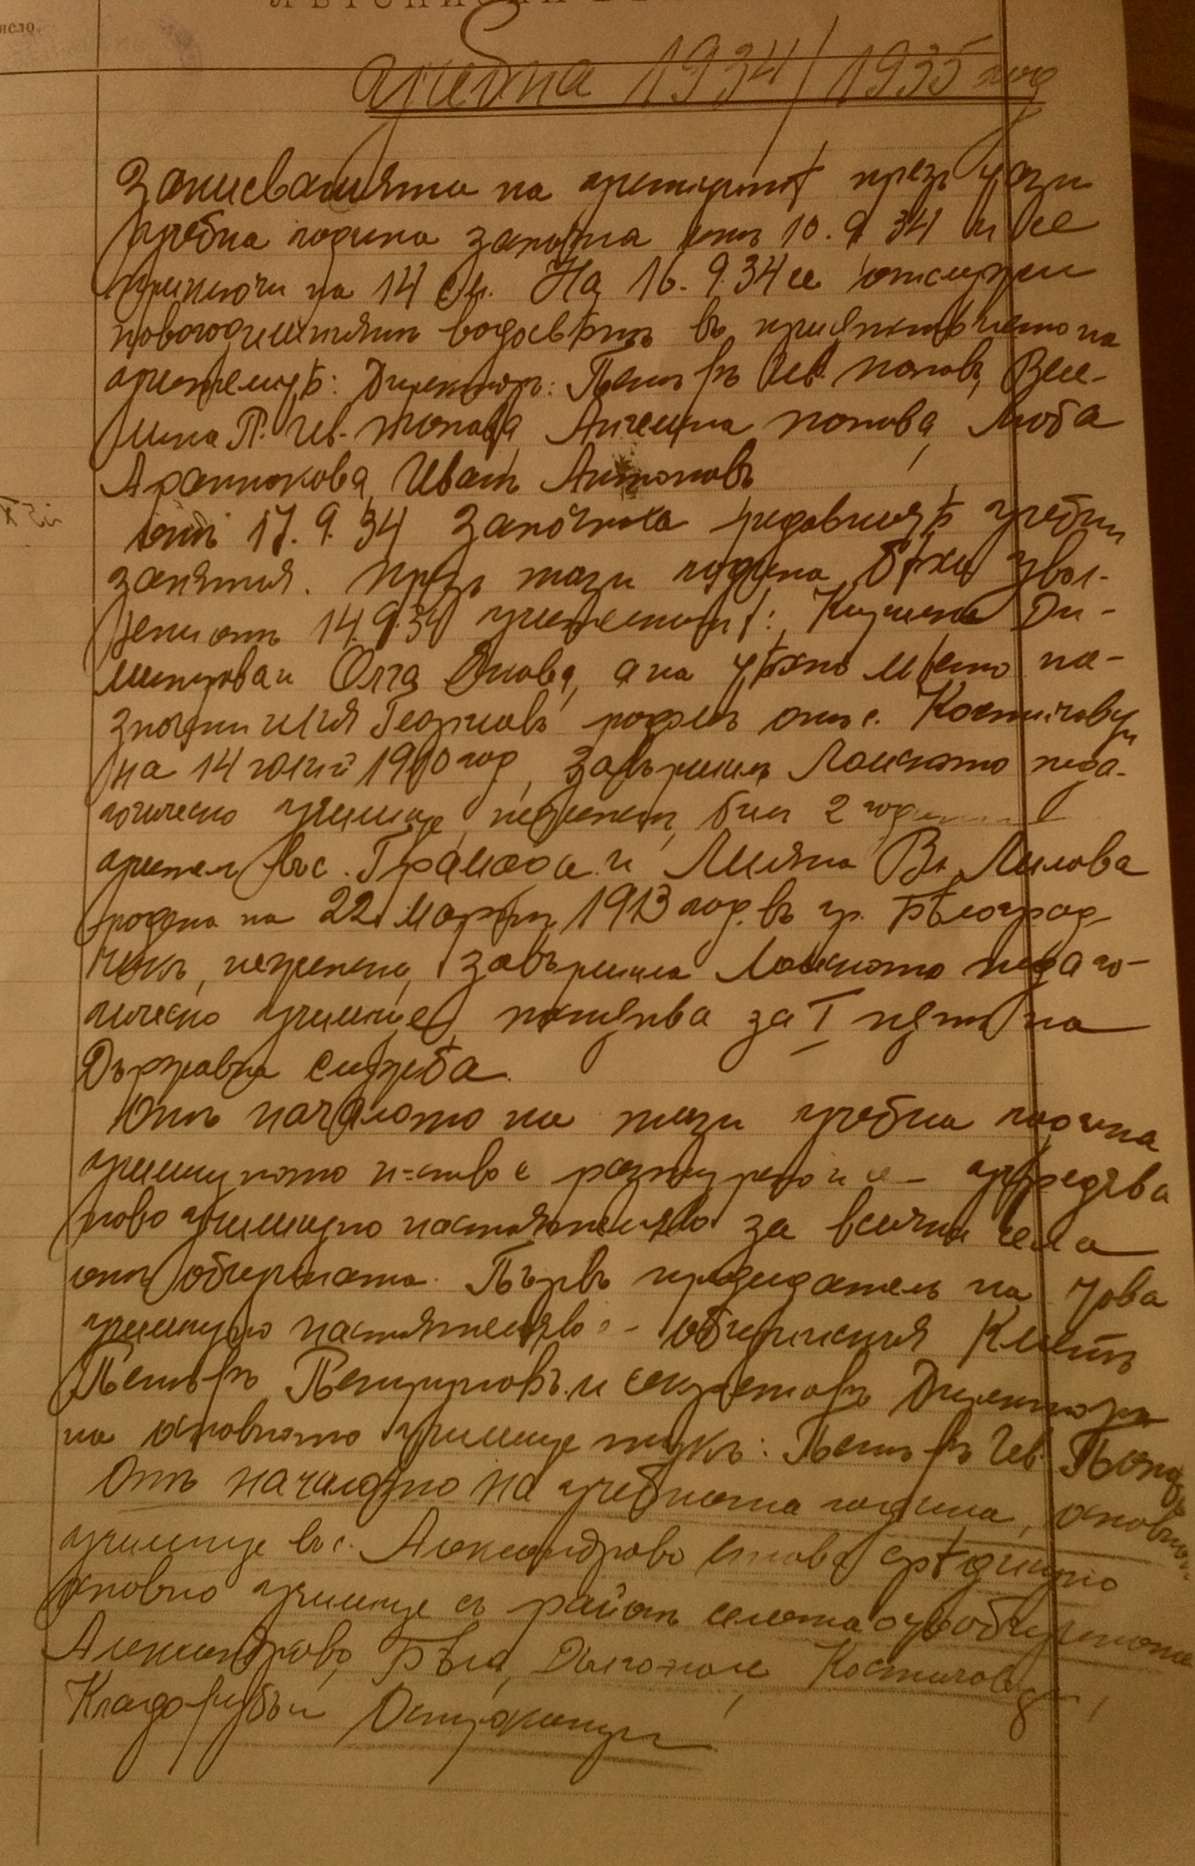 учебна 1934/1935 год
Записванията на учениците презъ тази
учебна година започна отъ 10. 9 34 и се
приключи на 14 с.м. На 16. 9. 34 се отслужи
новогодишниятъ водосвѣтъ въ присѫтствието на
учителитѣ: Директоръ: Петъръ Ив. Поповъ, Веле-
П. Ив. Попова, Ангелина Попова, Люба
Иванъ Антоновъ
Отъ 17. 9. 34 започнаха редовнитѣ учебни
занятия. Презъ тази година бѣха увол-
нени отъ 14. 9. 34 учителкитѣ: Ди-
митрова и Олга а на тѣхно мѣсто на-
значени Илия Георгиевъ роденъ отъ с. Костичовци
на 14 юлий 1910 год, завършилъ Ломското педа-
гогическо училище, неженен, бил 2 години
учител въ с. Грамада и Лиляна В. Милова
родена на 22 Мартъ 1913 год. въ гр. Бѣлоград-
чикъ, неженена, завършила Ломското педаго-
гическо училище, постѫпва за I пѫть на
Държавна служба.
Отъ началото на тази учебна година
училищното н-ство е разтурено и се учредява
ново училищно настоятелство за всички села
отъ общината. Първъ председатель на това
училищно настоятелство - общинския Кметъ
Петъръ и секретарь Директора
на основното училище тукъ: Петъръ Ив. Поповъ
Отъ началото на учебната година, основното
училище въ с. Александрово става срѣдищно
основно училище съ районъ селата отъ общината
Александрово, Бѣла, Дългополе, Костичовци,
Кладорубъ и Острокапци